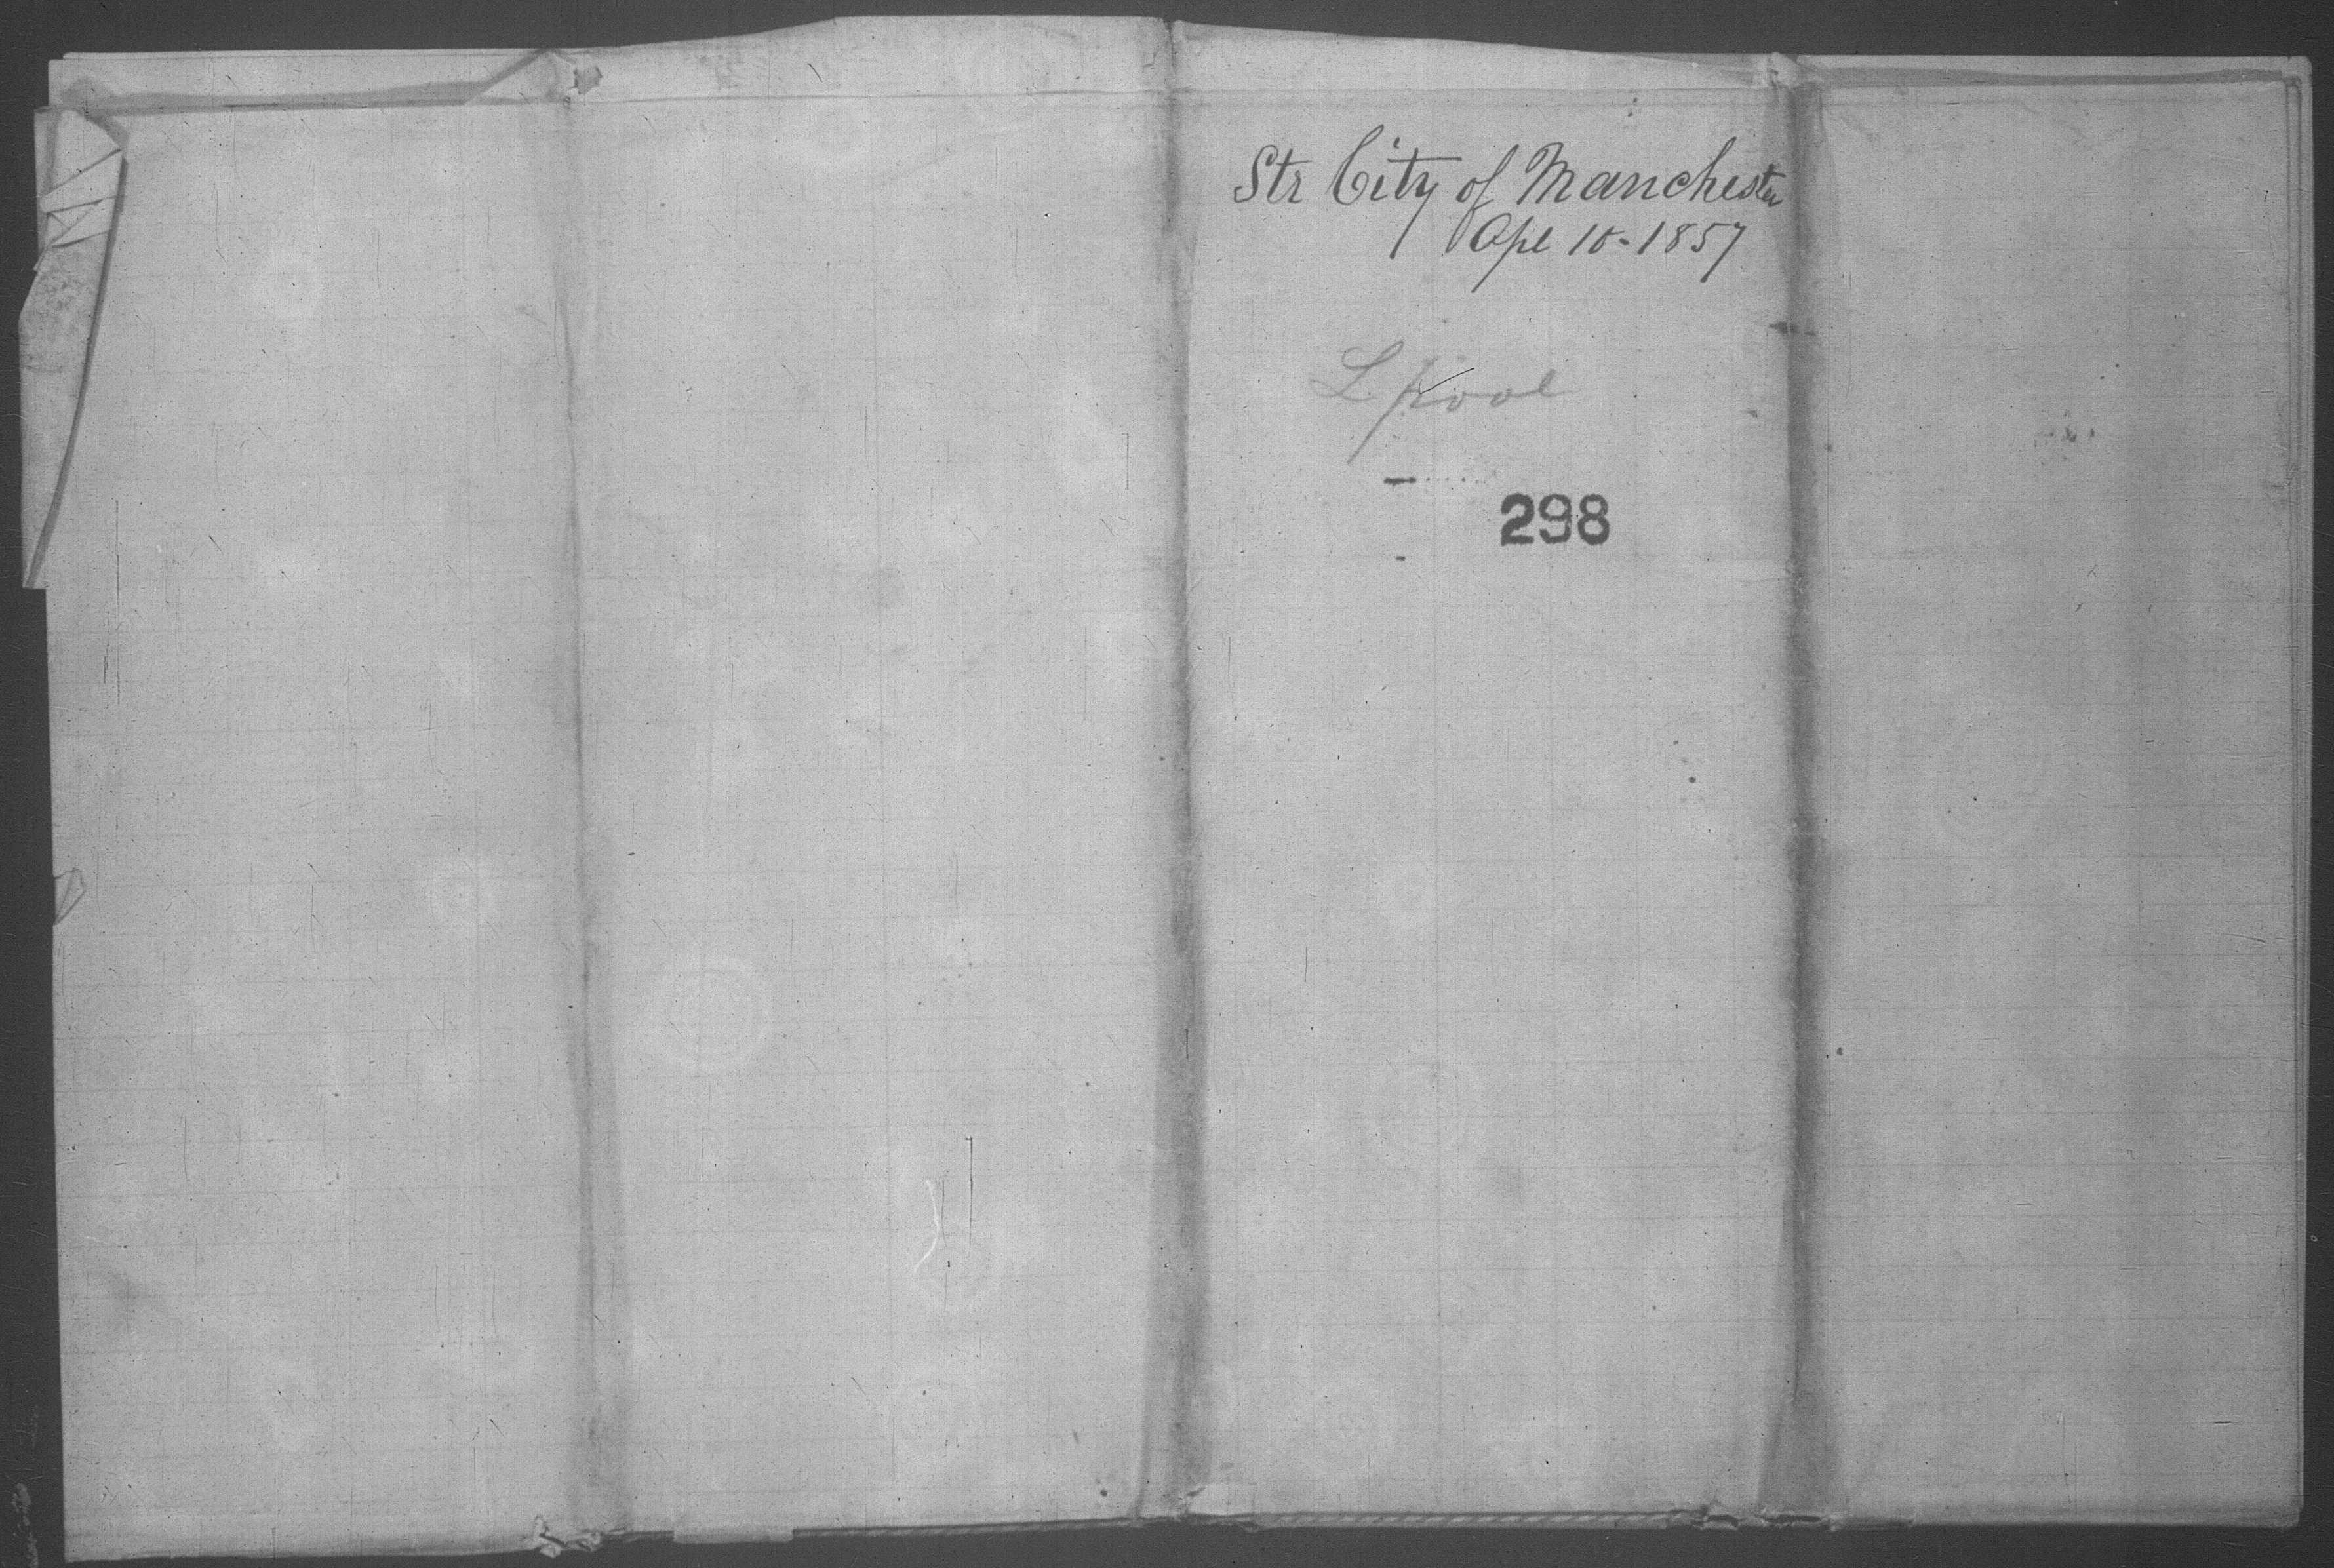 Str City of Manchester
Apl 10-1857
L pool
298